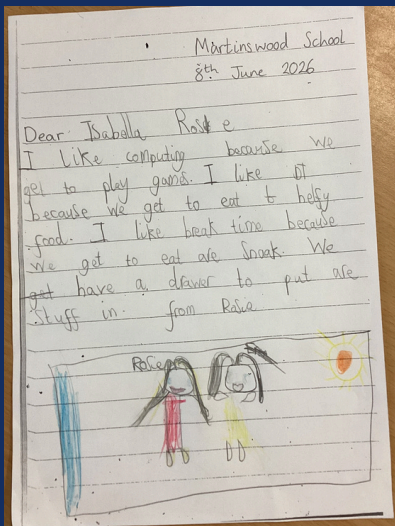 Martinswood School
8th June 2026
Dear Isabella Rosie
I like computing because we
get to play games. I like DT
because we get to eat t helfy
food. I like break time because
we get to eat are snak. We
get have a drawer to put are
stuff in. from Rosie
Rosie